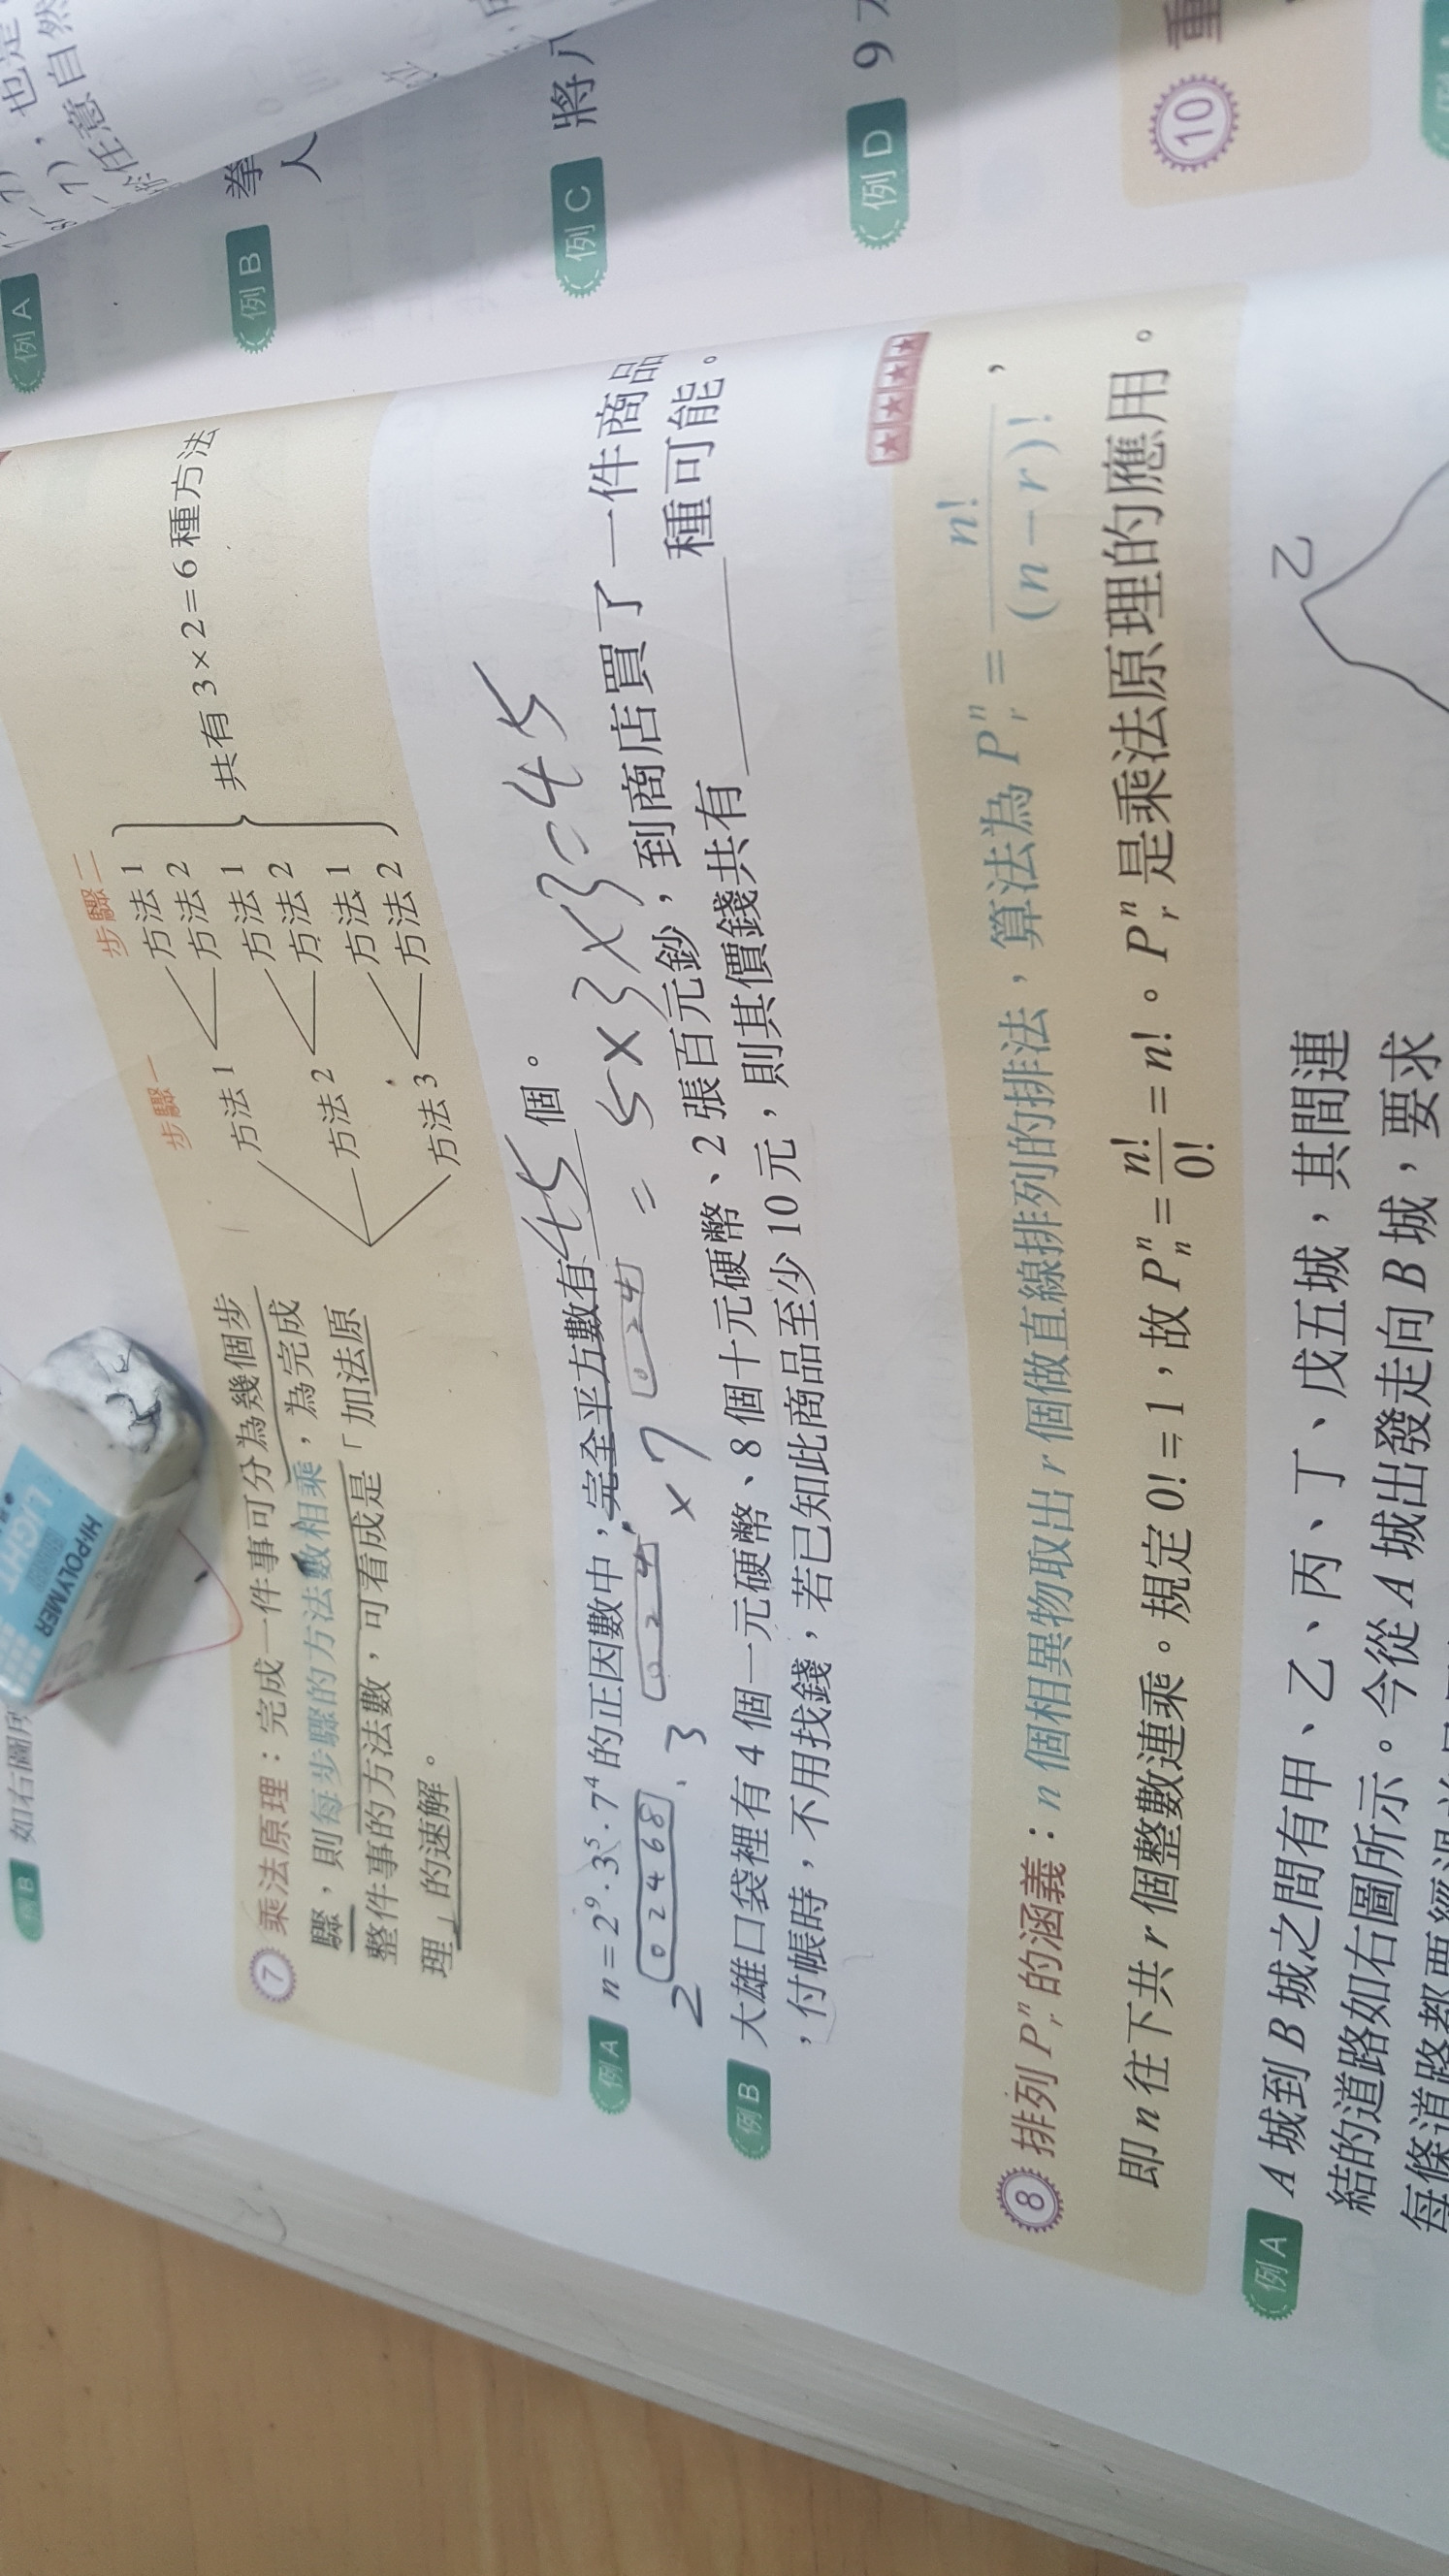 例 B 如右圖所
HI-POLYMER
LIGHT
7 乘法原理：完成一件事可分為幾個步
驟，則每步驟的方法數相乘，為完成
整件事的方法數，可看成是「加法原
理」的速解。
步驟一 步驟二
方法 1 方法 1
方法 2
方法 2 方法 1
方法 2
方法 3 方法 1
方法 2
共有 3 × 2 = 6 種方法
例 A n = 2⁹ · 3⁵ · 7⁴ 的正因數中，完全平方數有 45 個。
2 0 2 4 6 8 · 3 0 2 4 × 7 0 2 4 = 5 × 3 × 3 = 45
例 B 大雄口袋裡有 4 個一元硬幣、8 個十元硬幣、2 張百元鈔，到商店買了一件商品
，付帳時，不用找錢，若已知此商品至少 10 元，則其價錢共有______種可能。
8 排列 Pⁿᵣ 的涵義：n 個相異物取出 r 個做直線排列的排法，算法為 Pⁿᵣ = n! / (n − r)!，
即 n 往下共 r 個整數連乘。規定 0! = 1，故 Pⁿₙ = n! / 0! = n!。Pⁿᵣ 是乘法原理的應用。
例 A A 城到 B 城之間有甲、乙、丙、丁、戊五城，其間連
結的道路如右圖所示。今從 A 城出發走向 B 城，要求
每條道路都要經過
乙
例 A
也是
自然
任意
例 B 拳
人
例 C 將
例 D 9
10 重